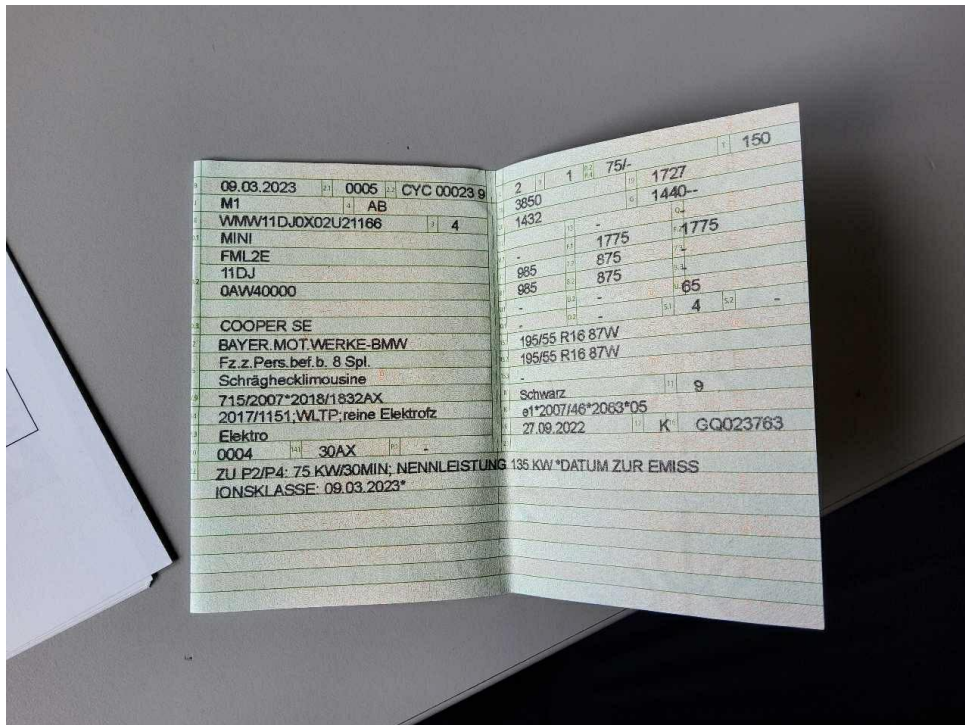 09.03.2023 2.1 0005 2.2 CYC 00023 9
M1 4 AB
WMW11DJ0X02U21166 3 4
MINI
FML2E
11DJ
0AW40000
COOPER SE
BAYER.MOT.WERKE-BMW
Fz.z.Pers.bef.b. 8 Spl.
Schräghecklimousine
715/2007*2018/1832AX
2017/1151;WLTP;reine Elektrofz
Elektro
0004 30AX -
ZU P2/P4: 75 KW/30MIN; NENNLEISTUNG 135 KW *DATUM ZUR EMISS
IONSKLASSE: 09.03.2023*
2 1 75/- T 150
3850 1727
1432 G 1440--
- - -
- 1775 1775
985 875 -
985 875 -
- - 65
- - 4 S.2 -
195/55 R16 87W
195/55 R16 87W
-
Schwarz 11 9
e1*2007/46*2063*05
27.09.2022 K GQ023763